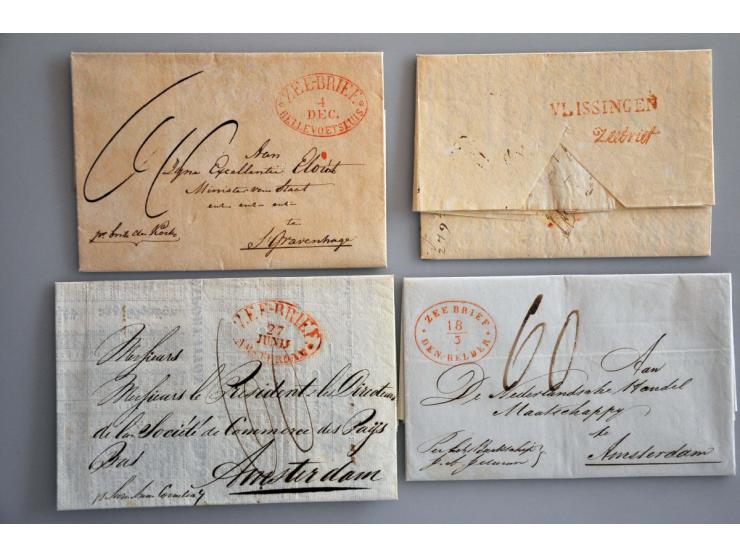 ZEE-BRIEF
4
DEC.
HELLEVOETSLUIS
Aan
Zyne Excellentie Elout
Minister van Staat
enz enz enz
te
s'Gravenhage
VLISSINGEN
Zeebrief
249
ZEE-BRIEF
27
JUNIJ
AMSTERDAM
Messieurs
Messieurs le President & les Directeurs
de la Société de Commerce des Pays
Bas
Amsterdam
ZEE BRIEF
18/3
DEN-HELDER
60
Aan
De Nederlandsche Handel
Maatschappy
te
Amsterdam